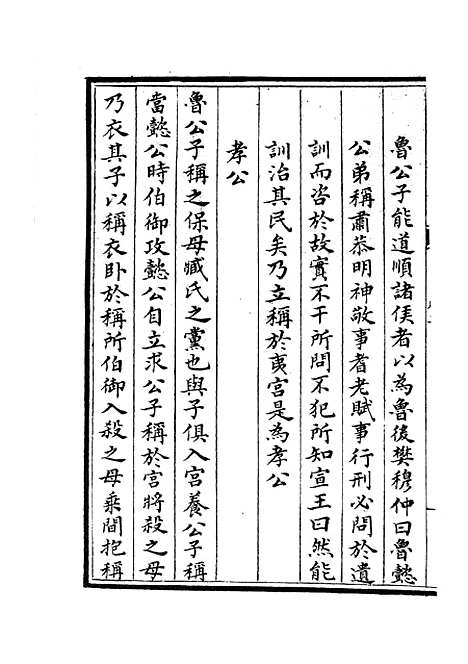 魯公子能道順諸侯者以為魯後樊穆仲曰魯懿
公弟稱肅恭明神敬事耆老賦事行刑必問於遺
訓而咨於故實不干所問不犯所知宣王曰然能
訓治其民矣乃立稱於夷宫是為孝公
孝公
魯公子稱之保母臧氏之黨也與子俱入宫養公子稱
當懿公時伯御攻懿公自立求公子稱於宫將殺之母
乃衣其子以稱衣卧於稱所伯御入殺之母乘間抱稱